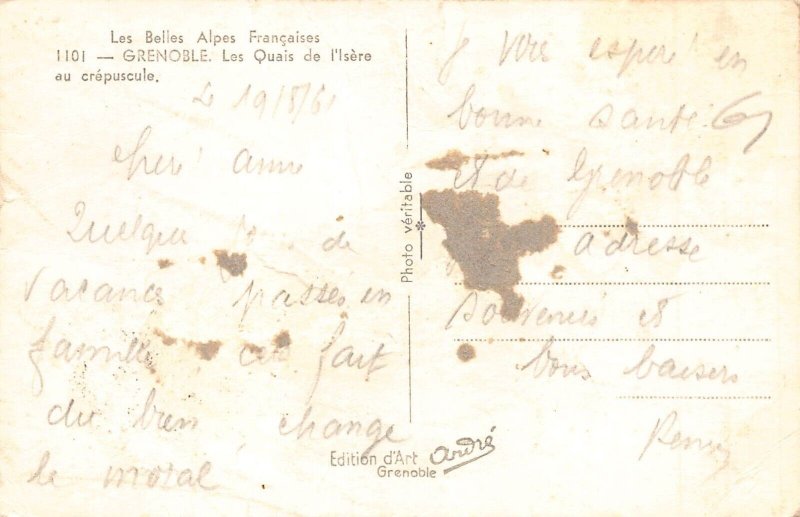 Les Belles Alpes Françaises
1101 — GRENOBLE. Les Quais de l'Isère
au crépuscule.
19/8/61
cher amie
Quelques de
vacances passées en
famille, cela fait
du bien, change
le moral
Photo véritable
Edition d'Art André
Grenoble
J espère en
bonne santé
et de Grenoble
adresse
souvenirs et
bons baisers